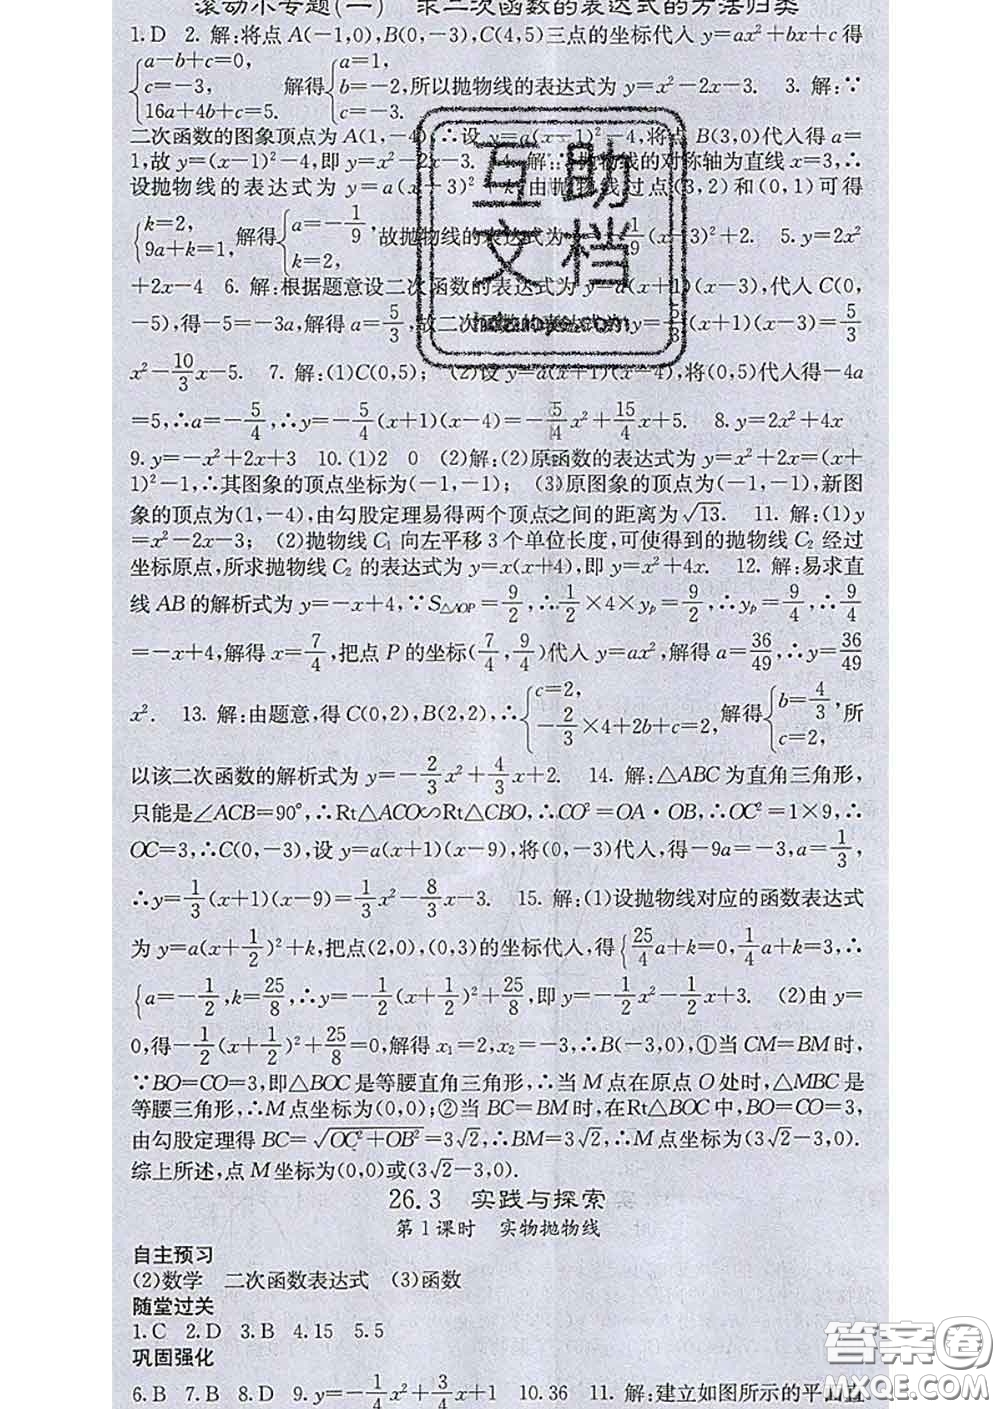 滚动小专题(一)　求二次函数的表达式的方法归类
1.D　2.解:将点A(-1,0),B(0,-3),C(4,5)三点的坐标代入y=ax²+bx+c得
{a-b+c=0, c=-3, 16a+4b+c=5. 解得{a=1, b=-2, c=-3. 所以抛物线的表达式为y=x²-2x-3.　3.解:∵
二次函数的图象顶点为A(1,-4),∴设y=a(x-1)²-4,将点B(3,0)代入得a=
1,故y=(x-1)²-4,即y=x²-2x-3.　4.解:∵抛物线的对称轴为直线x=3,∴
设抛物线的表达式为y=a(x-3)²+k,由抛物线过点(3,2)和(0,1)可得
{k=2, 9a+k=1, 解得{a=-1/9, k=2, 故抛物线的表达式为y=-1/9(x-3)²+2.　5.y=2x²
+2x-4　6.解:根据题意设二次函数的表达式为y=a(x+1)(x-3),代入C(0,
-5),得-5=-3a,解得a=5/3,故二次函数的表达式为y=5/3(x+1)(x-3)=5/3
x²-10/3x-5.　7.解:(1)C(0,5);　(2)设y=a(x+1)(x-4),将(0,5)代入得-4a
=5,∴a=-5/4,∴y=-5/4(x+1)(x-4)=-5/4x²+15/4x+5.　8.y=2x²+4x
9.y=-x²+2x+3　10.(1)2　0　(2)解:(2)原函数的表达式为y=x²+2x=(x+
1)²-1,∴其图象的顶点坐标为(-1,-1);　(3)原图象的顶点为(-1,-1),新图
象的顶点为(1,-4),由勾股定理易得两个顶点之间的距离为√13.　11.解:(1)y
=x²-2x-3;　(2)抛物线C₁向左平移3个单位长度,可使得到的抛物线C₂经过
坐标原点,所求抛物线C₂的表达式为y=x(x+4),即y=x²+4x.　12.解:易求直
线AB的解析式为y=-x+4,∵S△AOP=9/2,∴1/2×4×yp=9/2,∴yp=9/4,∴9/4
=-x+4,解得x=7/4,把点P的坐标(7/4,9/4)代入y=ax²,解得a=36/49,∴y=36/49
x².　13.解:由题意,得C(0,2),B(2,2),∴{c=2, -2/3×4+2b+c=2, 解得{b=4/3, c=2, 所
以该二次函数的解析式为y=-2/3x²+4/3x+2.　14.解:△ABC为直角三角形,
只能是∠ACB=90°,∴Rt△ACO∽Rt△CBO,∴CO²=OA·OB,∴OC²=1×9,∴
OC=3,∴C(0,-3),设y=a(x+1)(x-9),将(0,-3)代入,得-9a=-3,a=1/3,
∴y=1/3(x+1)(x-9)=1/3x²-8/3x-3.　15.解:(1)设抛物线对应的函数表达式
为y=a(x+1/2)²+k,把点(2,0),(0,3)的坐标代入,得{25/4a+k=0,1/4a+k=3,∴
{a=-1/2,k=25/8,∴y=-1/2(x+1/2)²+25/8,即y=-1/2x²-1/2x+3.　(2)由y=
0,得-1/2(x+1/2)²+25/8=0,解得x₁=2,x₂=-3,∴B(-3,0),①当CM=BM时,
∵BO=CO=3,即△BOC是等腰直角三角形,∴当M点在原点O处时,△MBC是
等腰三角形,∴M点坐标为(0,0);②当BC=BM时,在Rt△BOC中,BO=CO=3,
由勾股定理得BC=√OC²+OB²=3√2,∴BM=3√2,∴M点坐标为(3√2-3,0).
综上所述,点M坐标为(0,0)或(3√2-3,0).
26.3　实践与探索
第1课时　实物抛物线
自主预习
(2)数学　二次函数表达式　(3)函数
随堂过关
1.C　2.D　3.B　4.15　5.5
巩固强化
6.B　7.B　8.D　9.y=-1/4x²+3/4x+1　10.36　11.解:建立如图所示的平面直
互助
文档
答案圈
MXQE.COM